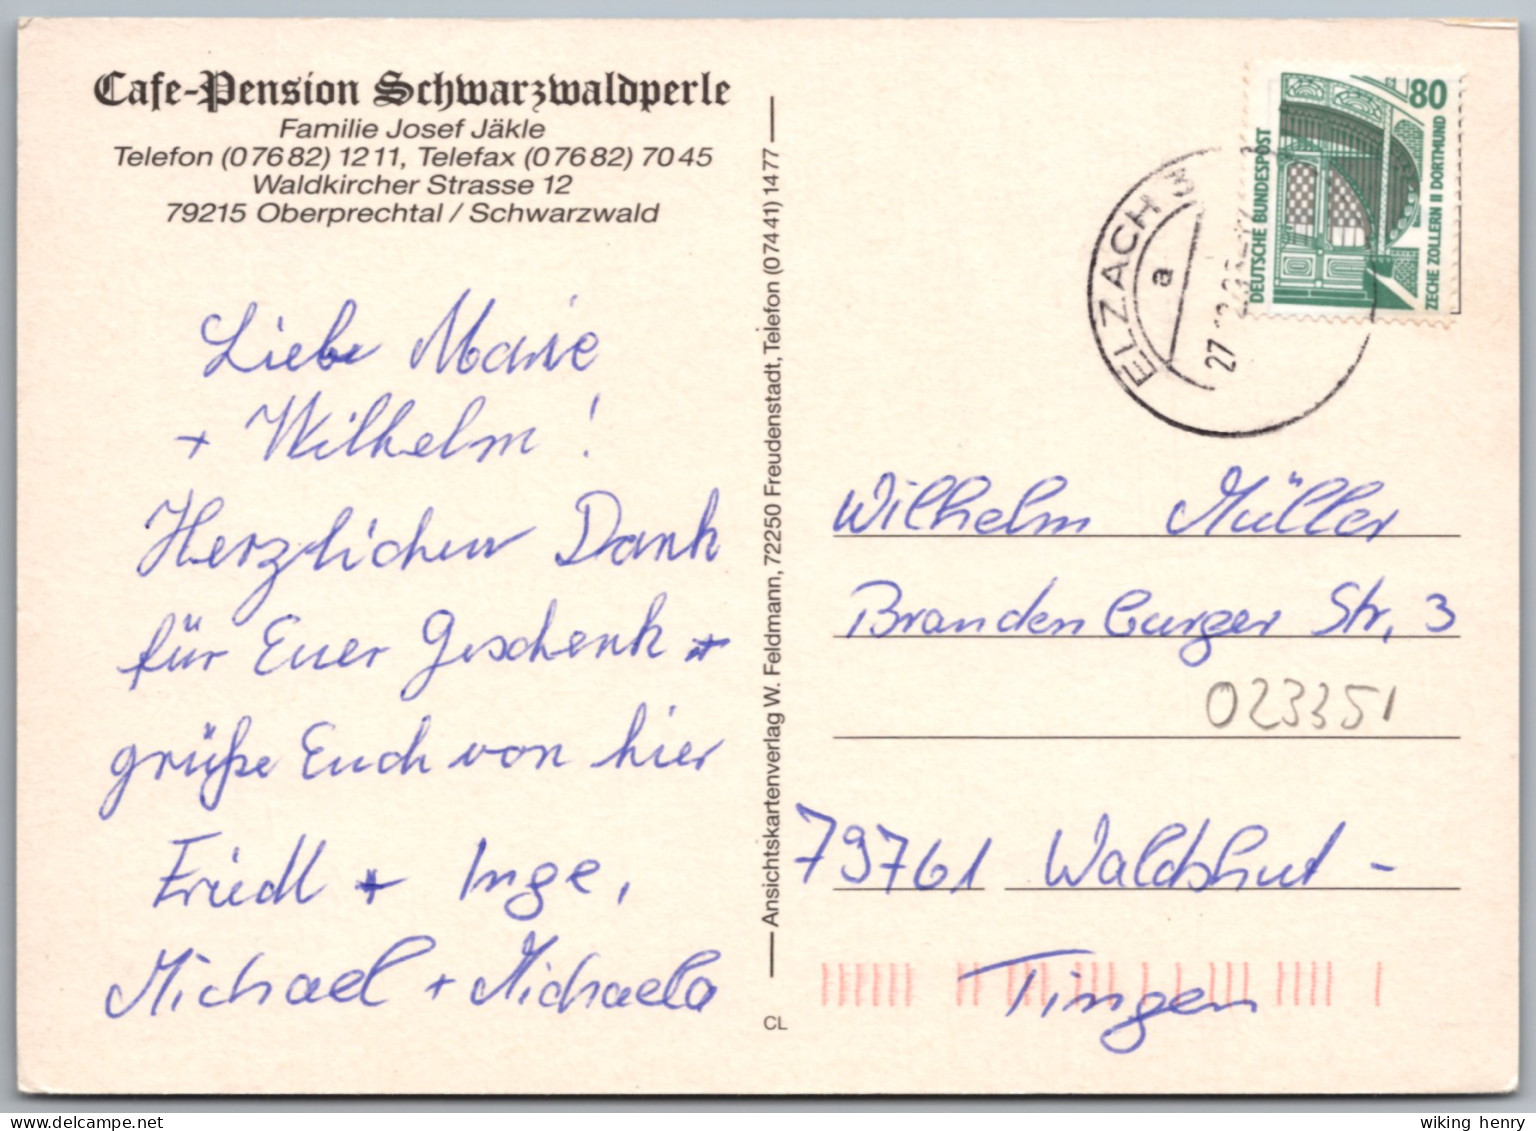 Cafe-Pension Schwarzwaldperle
Familie Josef Jäkle
Telefon (0 76 82) 12 11, Telefax (0 76 82) 70 45
Waldkircher Strasse 12
79215 Oberprechtal / Schwarzwald
Liebe Marie
+ Wilhelm !
Herzlichen Dank
für Euer Geschenk +
grüße Euch von hier
Friedl + Inge,
Michael + Michaela
Ansichtskartenverlag W. Feldmann, 72250 Freudenstadt, Telefon (0 74 41) 14 77
CL
80
DEUTSCHE BUNDESPOST
ZECHE ZOLLERN II DORTMUND
ELZACH 3
a
27
Wilhelm Müller
Brandenburger Str. 3
023351
79761 Waldshut -
Tingen
wiking henry